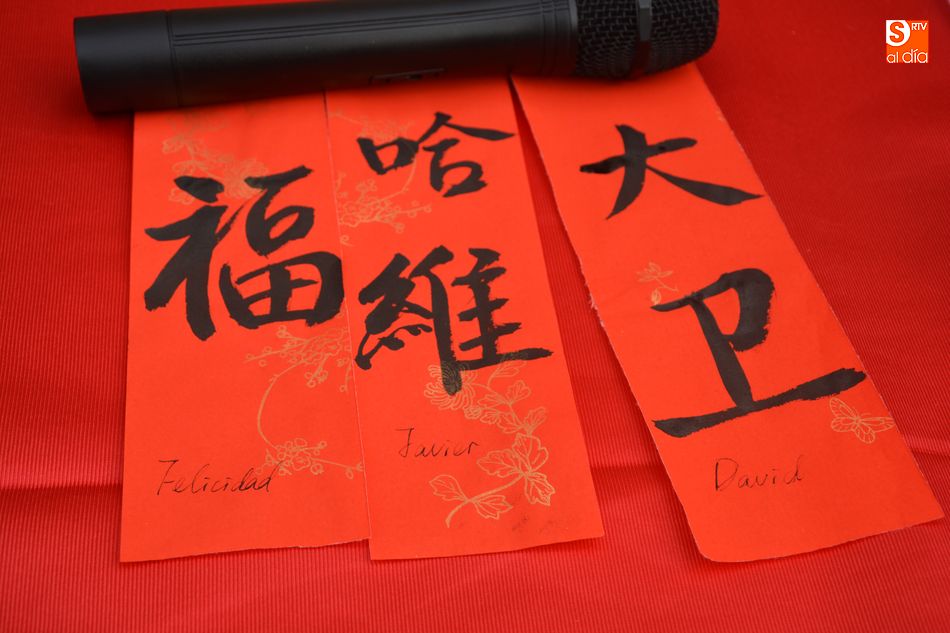 福
Felicidad
哈
維
Javier
大
卫
David
S RTV
al día